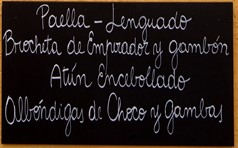 Paella - Lenguado
Brocheta de Emperador y gambón
Atún Encebollado
Albóndigas de Choco y Gambas